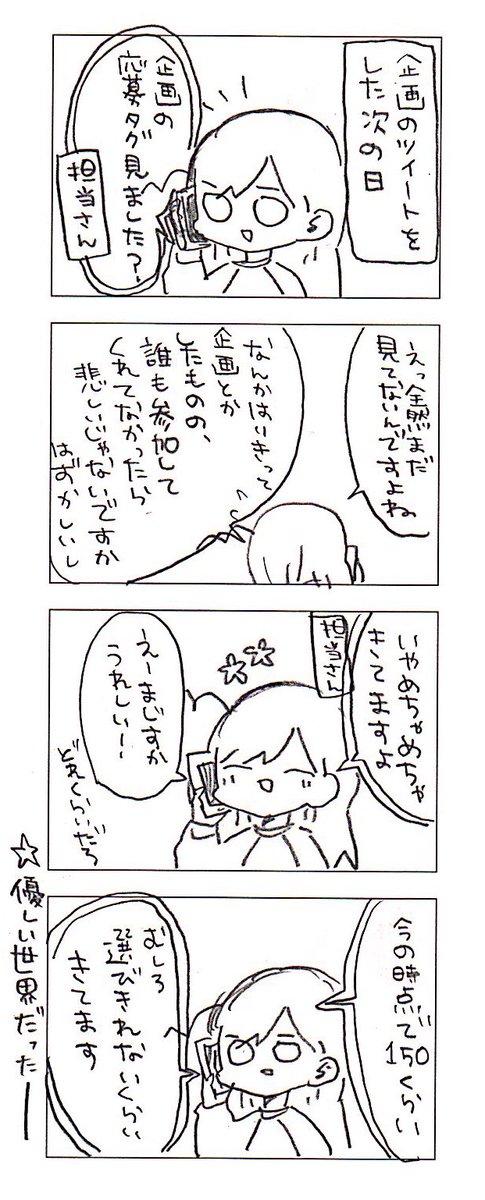 企画のツイートを
した次の日
企画の
応募タグ見ました?
担当さん
えっ全然まだ
見てないんですよね
なんかはりきって
企画とか
したものの、
誰も参加して
くれてなかったら
悲しいじゃないですか
はずかしいし
担当さん
いやめちゃめちゃ
きてますよ
えーまじすか
うれしい!
どれくらいだろ
今の時点で150くらい
むしろ
選びきれないくらい
きてます
☆優しい世界だったー